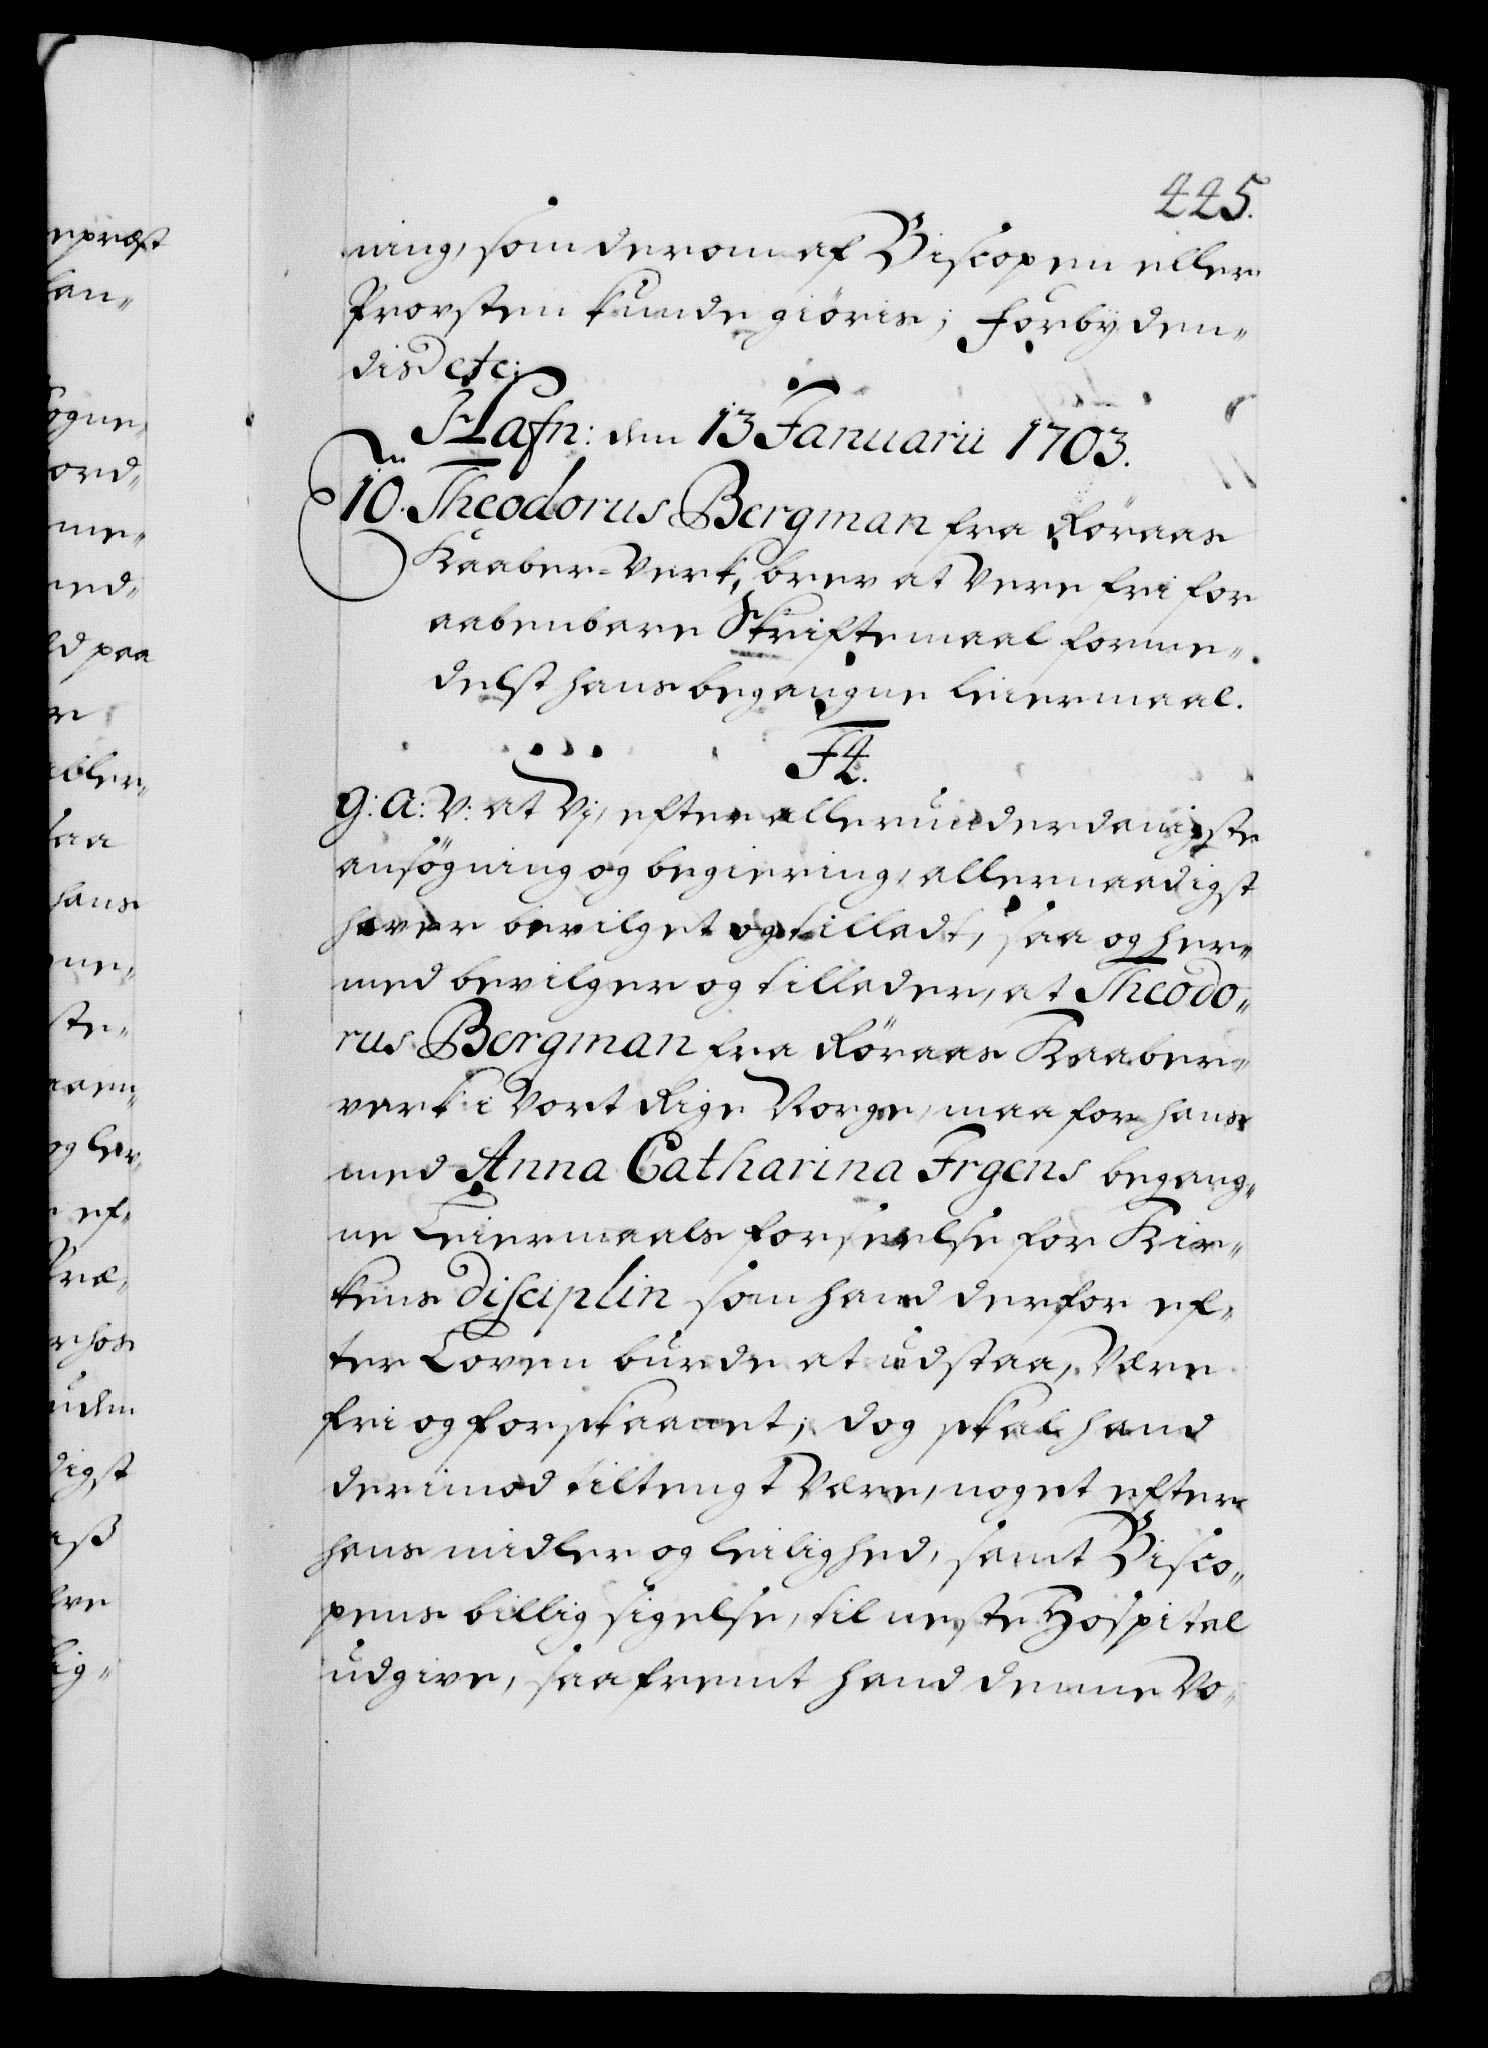 445.
ning, som derom af Biscopen eller
Provsten kunde giöris; forbyden„
dis etc:
Hafn: den 13 Januarii 1703.
10. Theodorus Bergman fra Röraas
Kaaber-Verk, brev at Vere fri for
aabenbare Skriftemaal forme„
delst hans begangne leiermaal.
F4.
G: A: V: at Vj, efter allerunderdanigste
ansögning og begiering, allernaadigst
haver bevilget og tilladt, saa og her„
med bevilger og tillader, at Theodo„
rus Bergman fra Röraas Kaaber„
verk i Vort Rige Norge, maa for hans
med Anna Catharina Irgens begang„
ne Leiermaals forseelse for Kir„
kens Disciplin som hand derfor ef„
ter Loven burde at udstaa, Være
fri og forskaanet; dog skal hand
derimod tiltengt Være, noget efter
hans midler og leilighed, samt Bisco„
pens billig sigelse, til neste Hospital
udgive, saafremt hand denne Vo„
epræst
ogne„
ord„
me„
ned„
ld paa
saa
hans
ste„
og ler„
ef„
Præ„
rhos
uden
digst
lig„